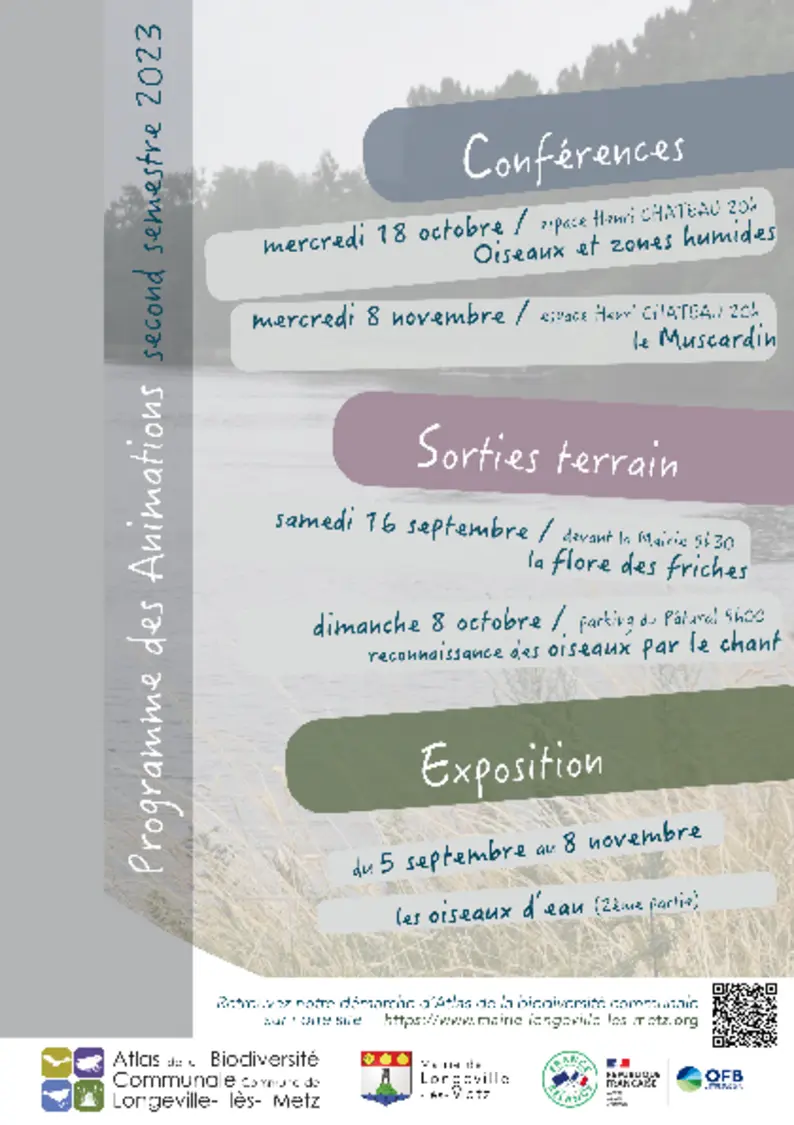 Programme des Animations second semestre 2023
Conférences
mercredi 18 octobre / espace Henri CHATEAU 20h
Oiseaux et zones humides
mercredi 8 novembre / espace Henri CHATEAU 20h
le Muscardin
Sorties terrain
samedi 16 septembre / devant la Mairie 9h30
la flore des friches
dimanche 8 octobre / parking du Pâtural 9h00
reconnaissance des oiseaux par le chant
Exposition
du 5 septembre au 8 novembre
les oiseaux d'eau (2ème partie)
Retrouvez notre démarche d'Atlas de la biodiversité communale
sur notre site https://www.mairie-longeville-les-metz.org
Atlas de la Biodiversité
Communale Commune de
Longeville- lès- Metz
Mairie de
Longeville
-lès-Metz
FRANCE
RELANCE
RÉPUBLIQUE
FRANÇAISE
OFB